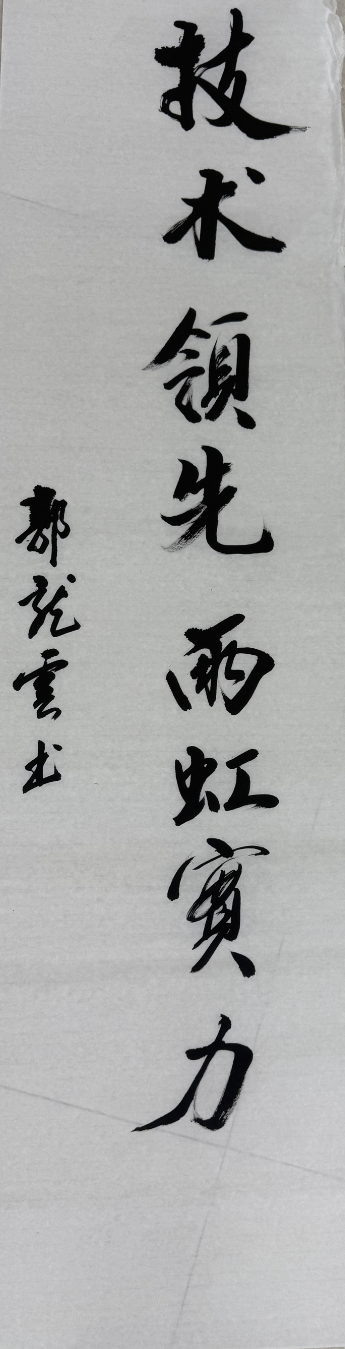 技术領先雨虹實力
鄭龍雲书